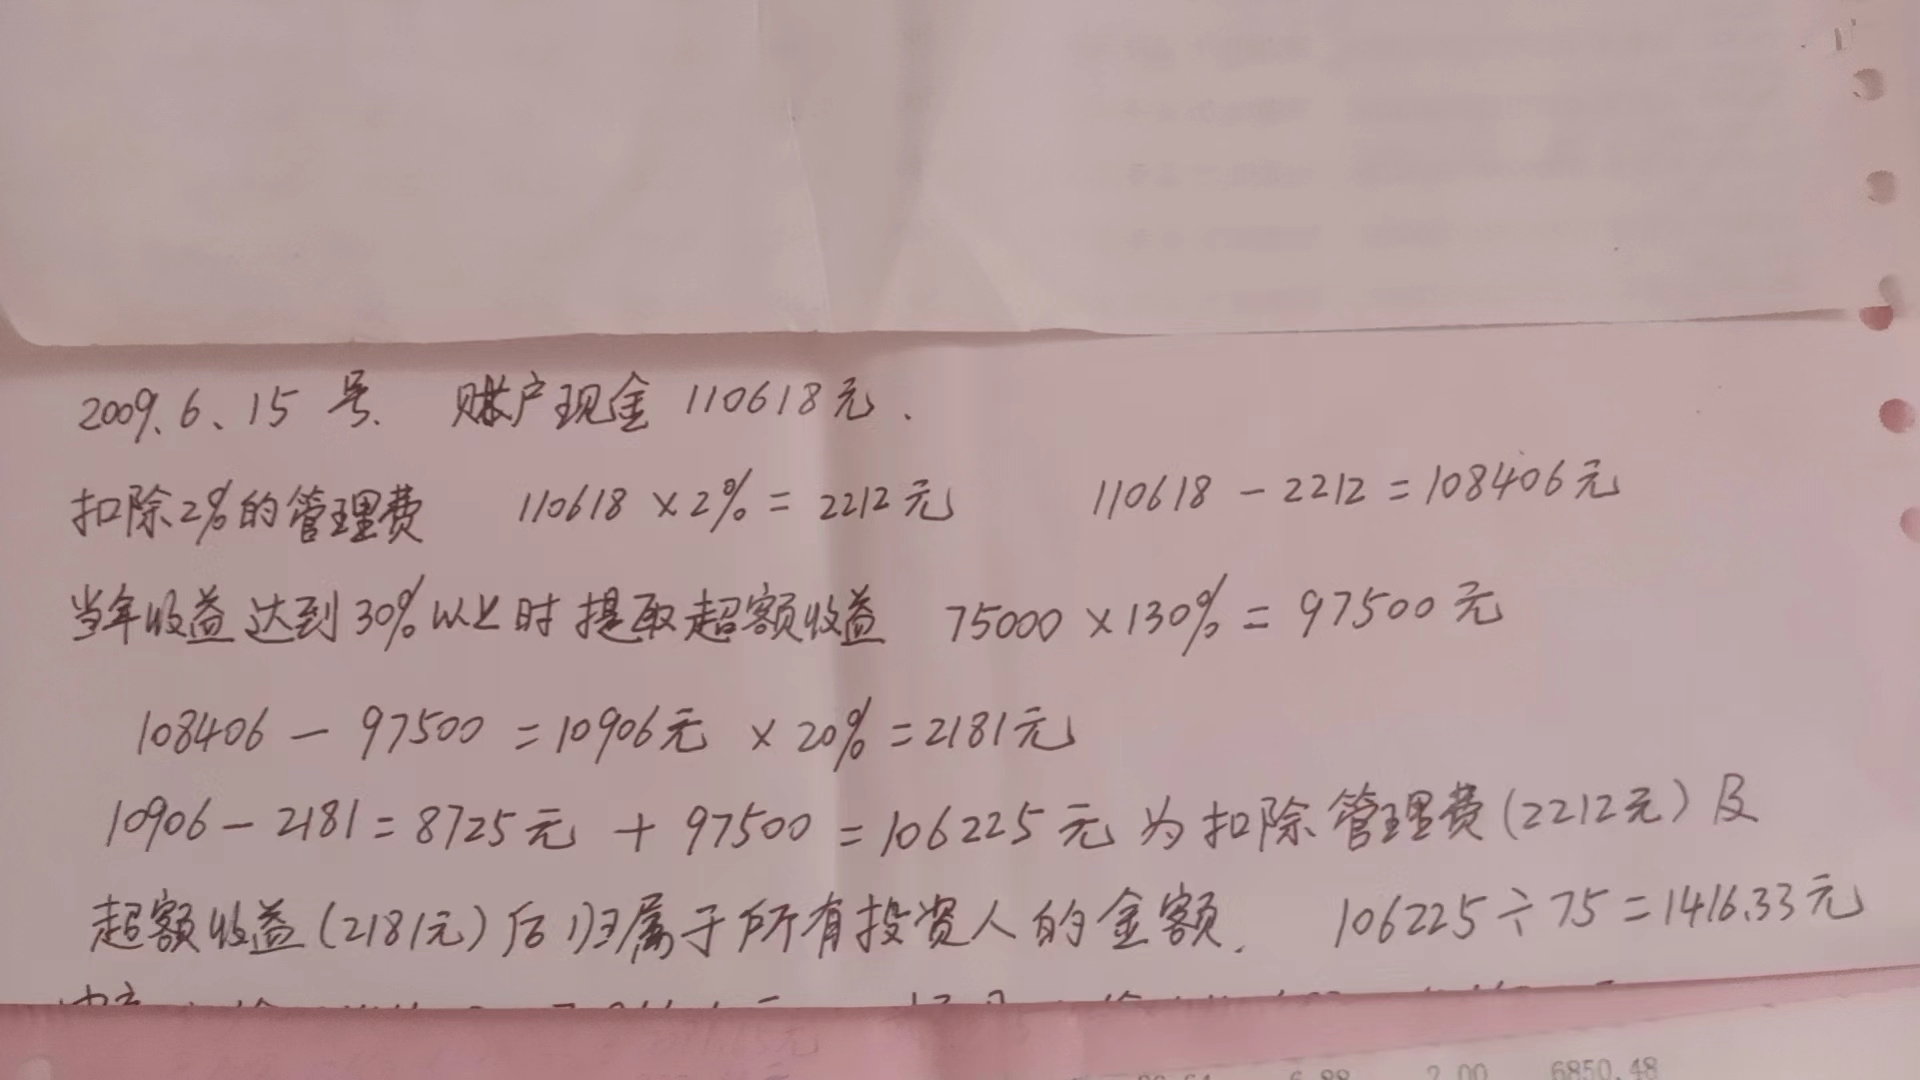 2009.6、15号. 账户现金 110618元.
扣除2%的管理费 110618 × 2% = 2212元 110618 - 2212 = 108406元
当年收益达到30%以上时提取超额收益 75000 × 130% = 97500元
108406 - 97500 = 10906元 × 20% = 2181元
10906 - 2181 = 8725元 + 97500 = 106225元 为扣除管理费(2212元)及
超额收益(2181元)后归属于所有投资人的金额. 106225 ÷ 75 = 1416.33元
6.88 2.00 6850.48